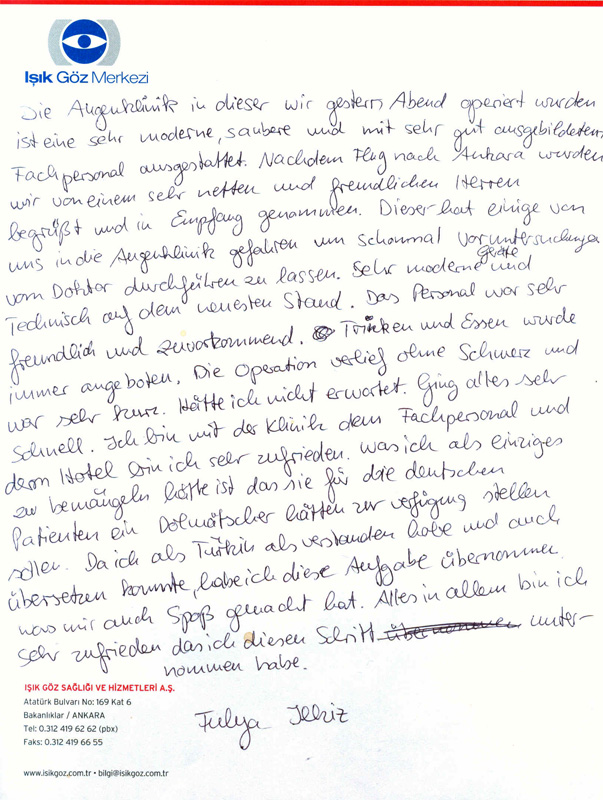 Işık Göz Merkezi
Die Augenklinik in dieser wir gestern Abend operiert wurden
ist eine sehr moderne, saubere und mit sehr gut ausgebildetem
Fachpersonal ausgestattet. Nachdem Flug nach Ankara wurden
wir von einem sehr netten und freundlichen Herren
begrüßt und in Empfang genommen. Dieser hat einige von
uns in die Augenklinik gefahren um schonmal Voruntersuchungen
vom Doktor durchführen zu lassen. Sehr moderne Geräte und
Technisch auf dem neuesten Stand. Das Personal war sehr
freundlich und zuvorkommend. Trinken und Essen wurde
immer angeboten. Die Operation verlief ohne Schmerz und
war sehr kurz. Hätte ich nicht erwartet. Ging alles sehr
Schnell. Ich bin mit der Klinik dem Fachpersonal und
dem Hotel bin ich sehr zufrieden. Was ich als einziges
zu bemängeln hätte ist das sie für die deutschen
Patienten ein Dolmätscher hätten zur verfügung stellen
sollen. Da ich als Türkin als verstanden habe und auch
übersetzen konnte, habe ich diese Aufgabe übernommen.
was mir auch Spaß gemacht hat. Alles in allem bin ich
sehr zufrieden das ich diesen Schritt unter-
nommen habe.
IŞIK GÖZ SAĞLIĞI VE HİZMETLERİ A.Ş.
Atatürk Bulvarı No: 169 Kat 6
Bakanlıklar / ANKARA
Tel: 0.312 419 62 62 (pbx)
Faks: 0.312 419 66 55
Fulya
www.isikgoz.com.tr • bilgi@isikgoz.com.tr